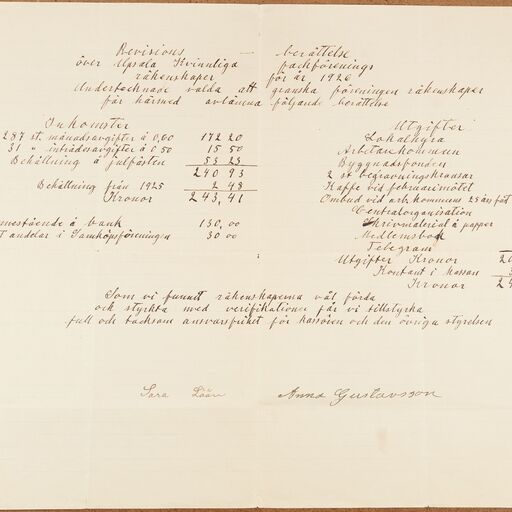 Revisions — berättelse
över Upsala Kvinnliga fackförenings
räkenskaper för år 1926
Undertecknade valda att granska föreningen räkenskaper
får härmed avlämna följande berättelse
Inkomster
287 st. månadsavgifter á 0,60 172 20
31 " inträdesavgifter á 0 50 15 50
Behållning á julfästen 53 23
240 93
Behållning från 1925 2 48
Kronor 243,41
nestående å bank 130,00
andelar i Samköpsföreningen 30 00
Utgifter
Lokalhyra
Arbetarekommunen
Byggnadsfonden
2 st begravningskransar
Kaffe vid februarimötet
Ombud vid arb. kommuns 25 års fäst
Centralorganisation
Skrivmaterial å papper
Medlemsbok
Telegram
Utgifter Kronor
Kontant i kassan
Kronor
Som vi funnit räkenskaperna väl förda
och styrkta med verifikationer får vi tillstyrka
full och tacksam ansvarsfrihet för kassören och den övriga styrelsen
Sara Anna Gustavsson